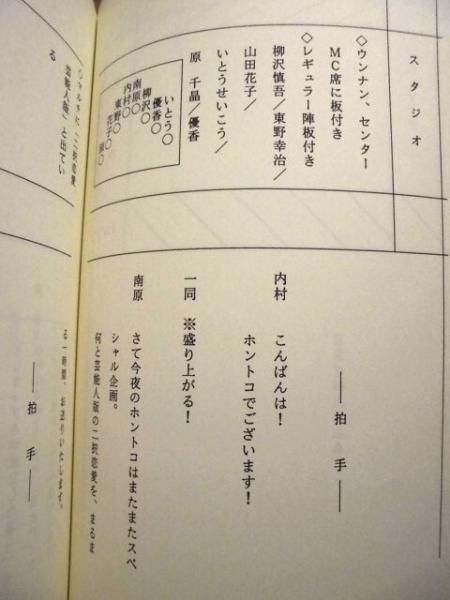 スタジオ
◇ウンナン、センター
MC席に板付き
◇レギュラー陣板付き
柳沢慎吾／東野幸治／
山田花子／
いとうせいこう／
原 千晶／優香
いとう○
優香○
柳沢○
南原○
内村○
東野○
花子○
原○
◇マルチに「二択恋愛
芸能人版」と出てい
る
――拍手――
内村 こんばんは！
ホントコでございます！
一同 ※盛り上がる！
南原 さて今夜のホントコはまたまたスペ
シャル企画。
何と芸能人版の二択恋愛を、まるま
る一時間、お送りいたします。
――拍手――